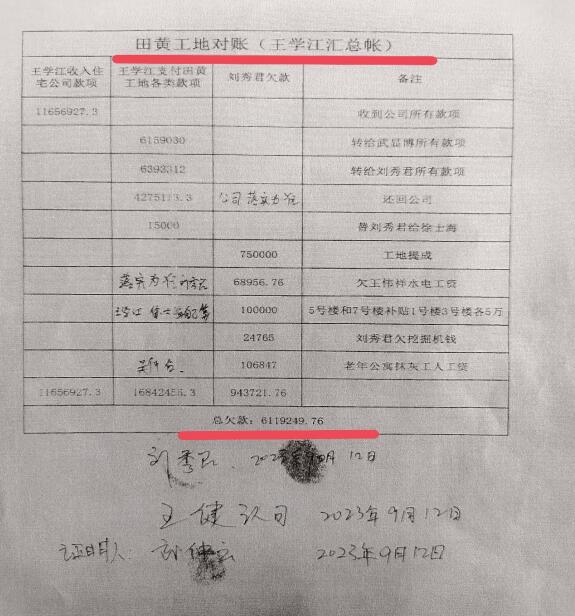 田黄工地对账（王学江汇总帐）
王学江收入住宅公司款项 王学江支付田黄工地各类款项 刘秀君欠款 备注
11656927.3 收到公司所有款项
6159030 转给武显博所有款项
6393312 转给刘秀君所有款项
4275113.3 公司落实为准 还回公司
15000 替刘秀君给徐士海
750000 工地提成
落实为准 68956.76 欠王伟祥水电工资
100000 5号楼和7号楼补贴1号楼3号楼各5万
24765 刘秀君欠挖掘机钱
106847 老年公寓抹灰工人工资
11656927.3 16842455.3 943721.76
总欠款：6119249.76
刘秀君 2023年9月12日
王健 2023年9月12日
证明人： 2023年9月12日